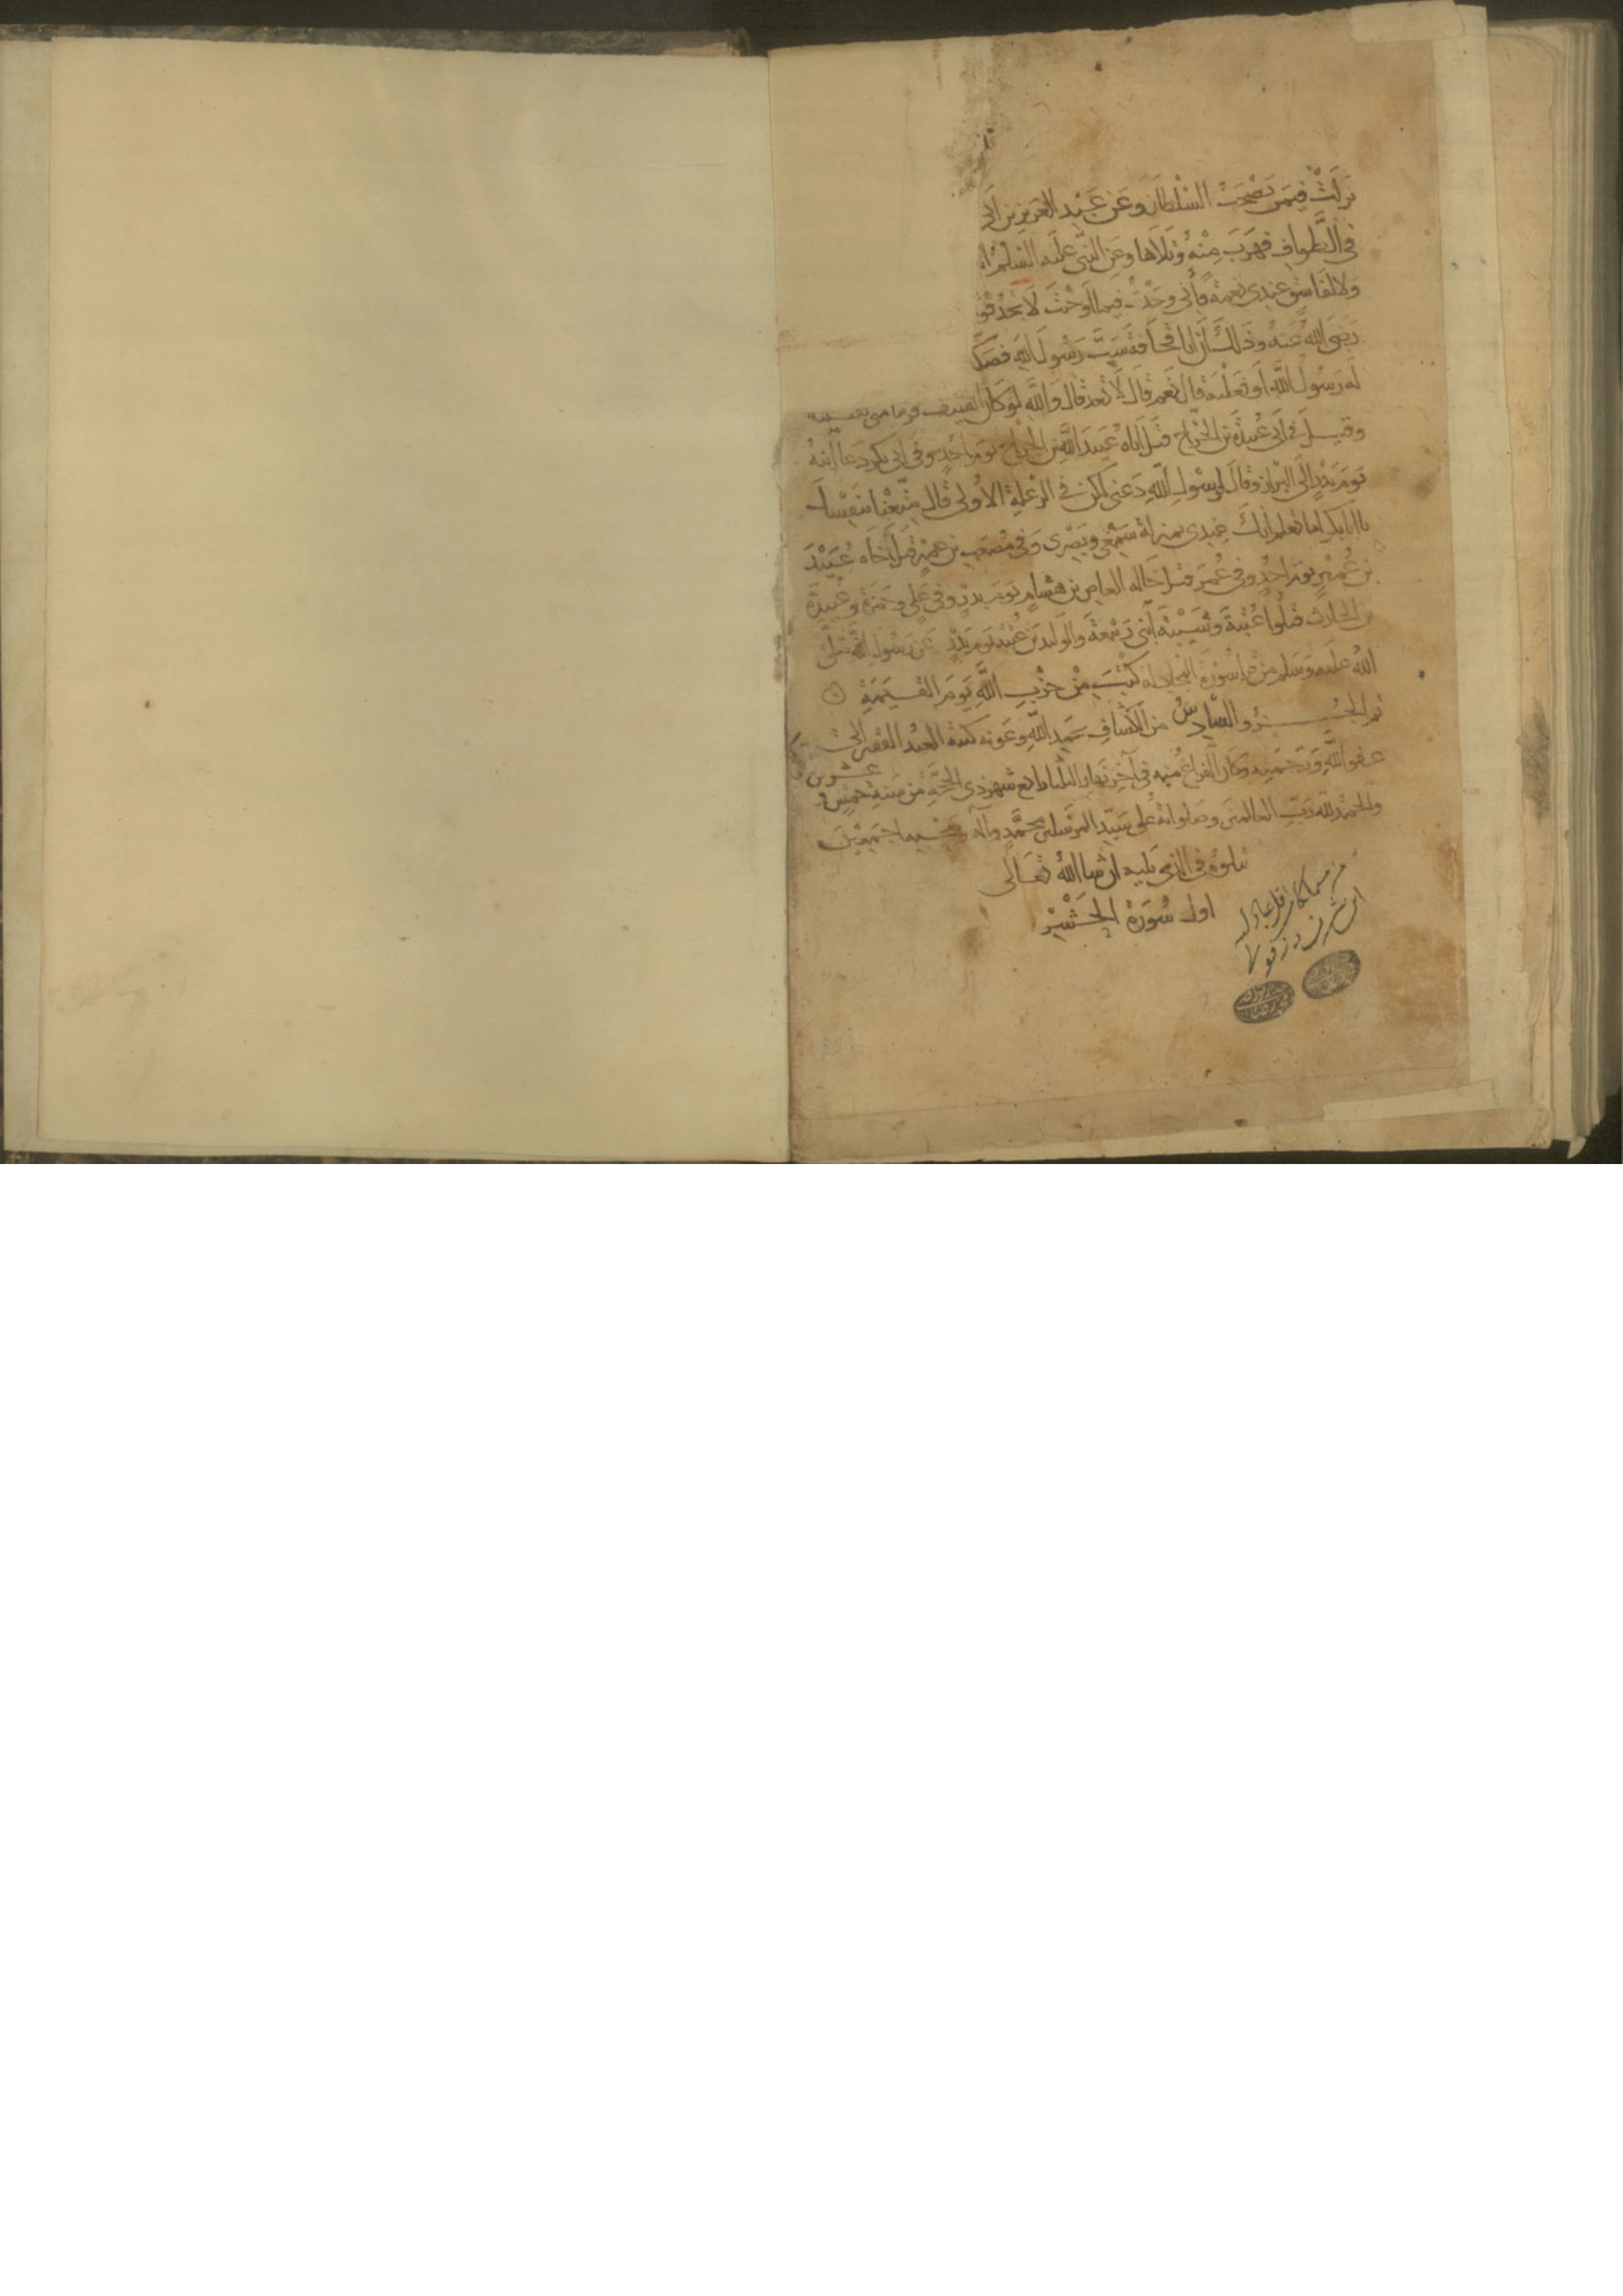 نزلت فيمن يصحب السلطان وعن عبد العزيز بن ابي
في الطواف فهرب منه وتلاها وعن النبي عليه السلم
ولا لفاسق عندي نعمة فاني وجدت فيما اوحيت لا تجد قوما
رضي الله عنه وذلك ان ابا قحافة سب رسول الله فصكه
له رسول الله اوفعلته قال نعم قال لا تعد قال والله لو كان السيف قريبا مني
وقيل في ابي عبيدة بن الجراح قتل اباه عبد الله بن الجراح يوم احد وفي ابي بكر دعا ابنه
يوم بدر الى البراز وقال لرسول الله دعني اكن في الرعلة الاولى قال متعنا بنفسك
يا ابا بكر اما تعلم انك عندي بمنزلة سمعي وبصري وفي مصعب بن عمير قتل اخاه عبيد
بن عمير يوم احد وفي عمر قتل خاله العاص بن هشام يوم بدر وفي علي وحمزة وعبيدة
بن الحارث قتلوا عتبة وشيبة ابني ربيعة والوليد بن عتبة يوم بدر عن رسول الله صلى
الله عليه وسلم من قرأ سورة المجادلة كتب من حزب الله يوم القيمة
تم الجزؤ السادس من الكشاف بحمد الله وعونه كتبه العبد الفقير الى
عفو الله ورحمته وكان الفراغ منه في آخر نهار الثلثا رابع شهر ذي الحجة من سنة خمس و عشرين
والحمد لله رب العالمين وصلواته على سيد المرسلين محمد وآله وصحبه اجمعين
يتلوه في الذي يليه ان شا الله تعالى
اول سورة الحشر